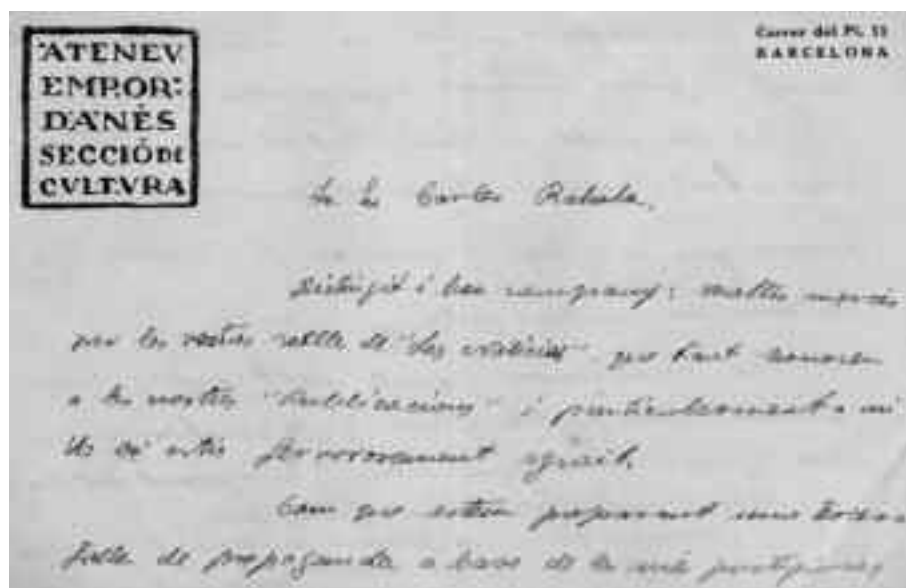 ATENEV
EMPOR:
DANÉS
SECCIÓ DE
CVLTVRA
Carrer del Pi, 11
BARCELONA
En Carles Rahola.
Distingit i bon company: moltes mercès
per les vostres ratlles de "Las Noticias" que tant honoren
a les nostres "Publicacions" i particularment a mi
Us en estic fervorosament agraït.
Com que estem preparant una
fulla de propaganda a base de la